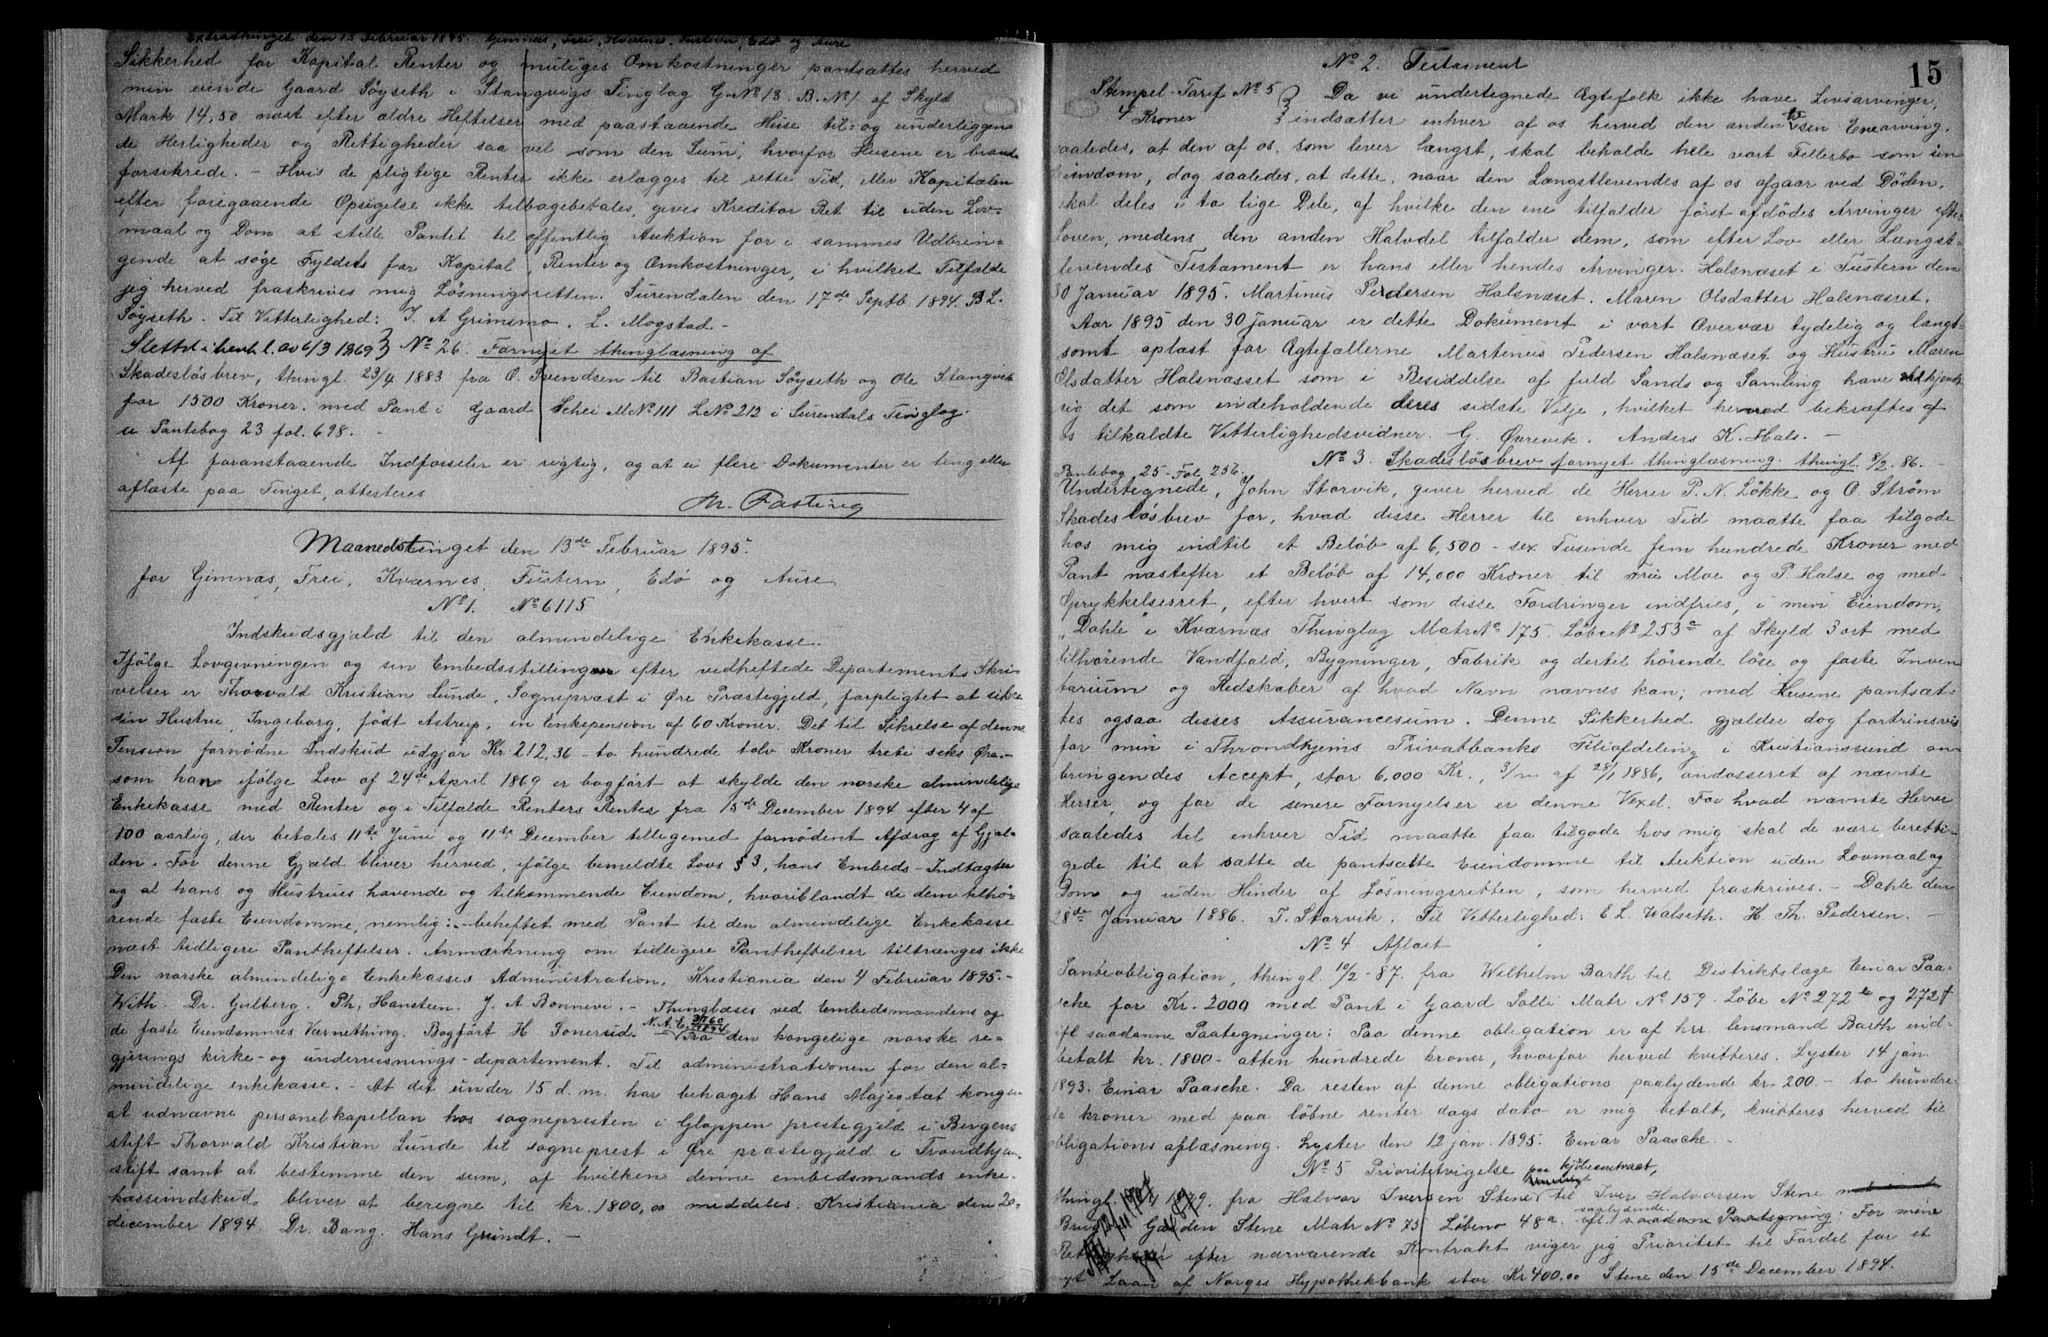 Extrathinget den 13 Februar 1895. Gimnæs, Frei, Kværnes, Tustern, Edø og Aure
Sikkerhed for Kapital Renter og mulige Omkostninger pantsættes herved
min eiende Gaard Søyseth i Stangvigs Tinglag G.No 18. B.No 1 af Skyld
Mark 14,50 næst efter ældre Heftelser med paastaaende Huse til- og underliggen-
de Herligheder og Rettigheder saa vel som den Sum, hvorfor Husene er brand-
forsikrede. - Hvis de pligtige Renter ikke erlægges til rette Tid, eller Kapitalen
efter foregaaende Opsigelse ikke tilbagebetales, gives Kreditor Ret til uden Lov-
maal og Dom at stille Pantet til offentlig Auktion for i sammes Udbrin-
gende at søge Fyldest for Kapital, Renter og Omkostninger, i hvilket Tilfælde
jeg herved fraskrives mig Løsningsretten. Surendalen den 17de Septb 1894. B L.
Søyseth. Til Vitterlighed: J. A Grimsmo. L. Mogstad -
Slettet i henh. l. av 6/3 1869 } No 26. Fornyet thinglæsning af
Skadesløsbrev, thingl. 23/4 1883 fra O. Svendsen til Bastian Søyseth og Ole Stangvik
for 1500 Kroner. med Pant i Gaard Schei M No 111 L No 212 i Surendals Tinglag.
se Pantebog 23 fol. 698. -
Af foranstaaende Indførseler er rigtig, og at ei flere Dokumenter er ting eller
aflæste paa Tinget, attesteres
M. Fasting
Maanedstinget den 13de Februar 1895.
for Gimnæs, Frei, Kværnes, Tustern, Edø og Aure
No 1. No 6115
Indskudsgjæld til den almindelige Enkekasse.
Ifølge Lovgivningen og sin Embedsstilling efter vedheftede Departements Skri-
velser er Thorvald Kristian Lunde, Sognepræst i Øre Præstegjeld, forpligtet at sikre
sin Hustru, Ingeborg, født Astrup, en Enkepension af 60 Kroner. Det til Sikrelse af denne
Pension fornødne Indskud udgjør Kr 212,36 - to hundrede tolv Kroner treti seks Øre -
som han ifølge Lov af 24de April 1869 er bogført at skylde den norske almindelige
Enkekasse med Renter og i Tilfælde Renters Renter fra 15de December 1894 efter 4 af
100 aarlig, der betales 11te Juni og 11te December tilligemed fornødent Afdrag af Gjæl-
den. For denne Gjæld bliver herved, ifølge bemeldte Lovs § 3, hans Embeds-Indtægter
og al hans og Hustrues havende og tilkommende Eiendom, hvoriblandt de dem tilhø-
rende faste Eiendomme, nemlig: - beheftet med Pant til den almindelige Enkekasse
næst tidligere Pantheftelser. Anmærkning om tidligere Pantheftelser tiltrænges ikke
Den norske almindelige Enkekasses Administration, Kristiania den 4 Februar 1895. -
With. Dr. Gulberg. Ph. Hansteen. J. A. Bonnevi. - Thinglæses ved Embedsmandens og
de faste Eiendommes Værnething. Bogført H Tonersude. N. A. E 3760/1894 Fra den kongelige norske re-
gjerings kirke- og undervisnings-departement. Til administrationen for den al-
mindelige enkekasse. - At det under 15 d. m. har behaget Hans Majestæt kongen
at udnævne personelkapellan hos sognepresten i Gloppen prestegjeld i Bergens
stift Thorvald Kristian Lunde til sogneprest i Øre præstegjeld i Trondhjems
stift samt at bestemme den sum, af hvilken denne embedsmands enke-
kasseindskud bliver at beregne til kr. 1800,00 meddeles. Kristiania den 20-
december 1894. Dr. Bang. Hans Grundt. -
15
No 2. Testament
Stempel-Tarif No 5 } Da vi undertegnede Ægtefolk ikke have Livsarvinger,
4 Kroner } indsætter enhver af os herved den anden til sin Enearving,
saaledes, at den af os, som lever længst, skal beholde hele vort Fællesbo som sin
Eiendom, dog saaledes, at dette, naar den Længstlevendes af os afgaar ved Døden,
skal deles i to lige Dele, af hvilke den ene tilfalder først afdødes Arvinger efter
Loven, medens den anden Halvdel tilfalder dem, som efter Lov eller Længst-
levendes Testament er hans eller hendes Arvinger. Halsnæset i Tustern den
30 Januar 1895. Martinus Pedersen Halsnæset. Maren Olsdatter Halsnæsset.
Aar 1895 den 30 Januar er dette Dokument i vort Overvær tydelig og langt-
somt oplæst for Ægtefællerne Martinus Pedersen Halsnæset og Hustru Maren
Olsdatter Halsnæsset som i Besiddelse af fuld Sands og Samling have vedkjendt
sig det som indeholdende deres sidste Vilje, hvilket herved bekræftes af
os tilkaldte Vitterlighedsvidner. G. Ørevik. Anders K. Hals. -
No 3. Skadesløsbrev fornyet thinglæsning. thingl. 8/2. 86. -
Pantebog 25 - Fol 256.
Undertegnede, John Storvik, giver herved de Herrer P. N. Løkke og O. Strøm
Skadesløsbrev for, hvad disse Herrer til enhver Tid maatte faa tilgode
hos mig indtil et Beløb af 6,500 - sex Tusinde fem hundrede Kroner med
Pant næstefter et Beløb af 14,000 Kroner til Moe og P. Halse og med
Oprykkelsesret, efter hvert som disse Fordringer indfries, i min Eiendom,
"Dahle" i Kværnæs Thinglag Matr No 175. Løbe No 253c af Skyld 3 ort med
tilhørende Vandfald, Bygninger, Fabrik og dertil hørende løse og faste Inven-
tarium og Redskaber af hvad Navn nævnes kan; med Husene pantsæt-
tes ogsaa disses Assurancesum. Denne Sikkerhed gjælder dog fortrinsvis
for min i Throndhjems Privatbanks Filialafdeling i Kristianssund an-
bringendes Accept, stor 6,000 Kr., 3/m af 28/1 1886, endosseret af nævnte
Herrer, og for de senere Fornyelser er denne Vexel. For hvad nævnte Herrer
saaledes til enhver Tid maatte faa tilgode hos mig skal de være beretti-
gede til at sætte de pantsatte Eiendomme til Auktion uden Lovmaal og
Dom og uden Hinder af Løsningsretten, som herved fraskrives. - Dahle den
28de Januar 1886. J. Storvik. Til Vitterlighed: E L. Walseth. H Th. Pedersen. -
No 4 Aflæst
Panteobligation, thingl. 10/2 - 87. fra Wilhelm Barth til Distriktslæge Einar Paa-
sche for Kr. 2000 med Pant i Gaard Solli Matr No 159. Løbe No 272 og 272f
ifl saadanne Paategninger: Paa denne obligation er af hr. lensmand Barth ind-
betalt kr. 1800 - atten hundrede kroner, hvorfor herved kvitteres. Lyster 14 jan
1893. Einar Paasche. Da resten af denne obligations paalydende kr. 200. - to hundre-
de kroner med paa løbne renter dags dato er mig betalt, kvitteres herved til
obligationens aflæsning. Lyster den 12 jan. 1895. Einar Paasche. -
No 5 Prioritetvigelse paa kjøbecontract,
thingl. 1879. fra Halvor Iversen Stene til Iver Halvorsen Stene
Brug i Gaarden Stene Matr No 75 Løbeno 48a. saalydende: ifl. saadan Paategning: For mine
Rettigheder efter nærværende Kontrakt viger jeg Prioritet til Fordel for et
nyt Laan af Norges Hypothekbank stor Kr 400.00 Stene den 15de December 1894.